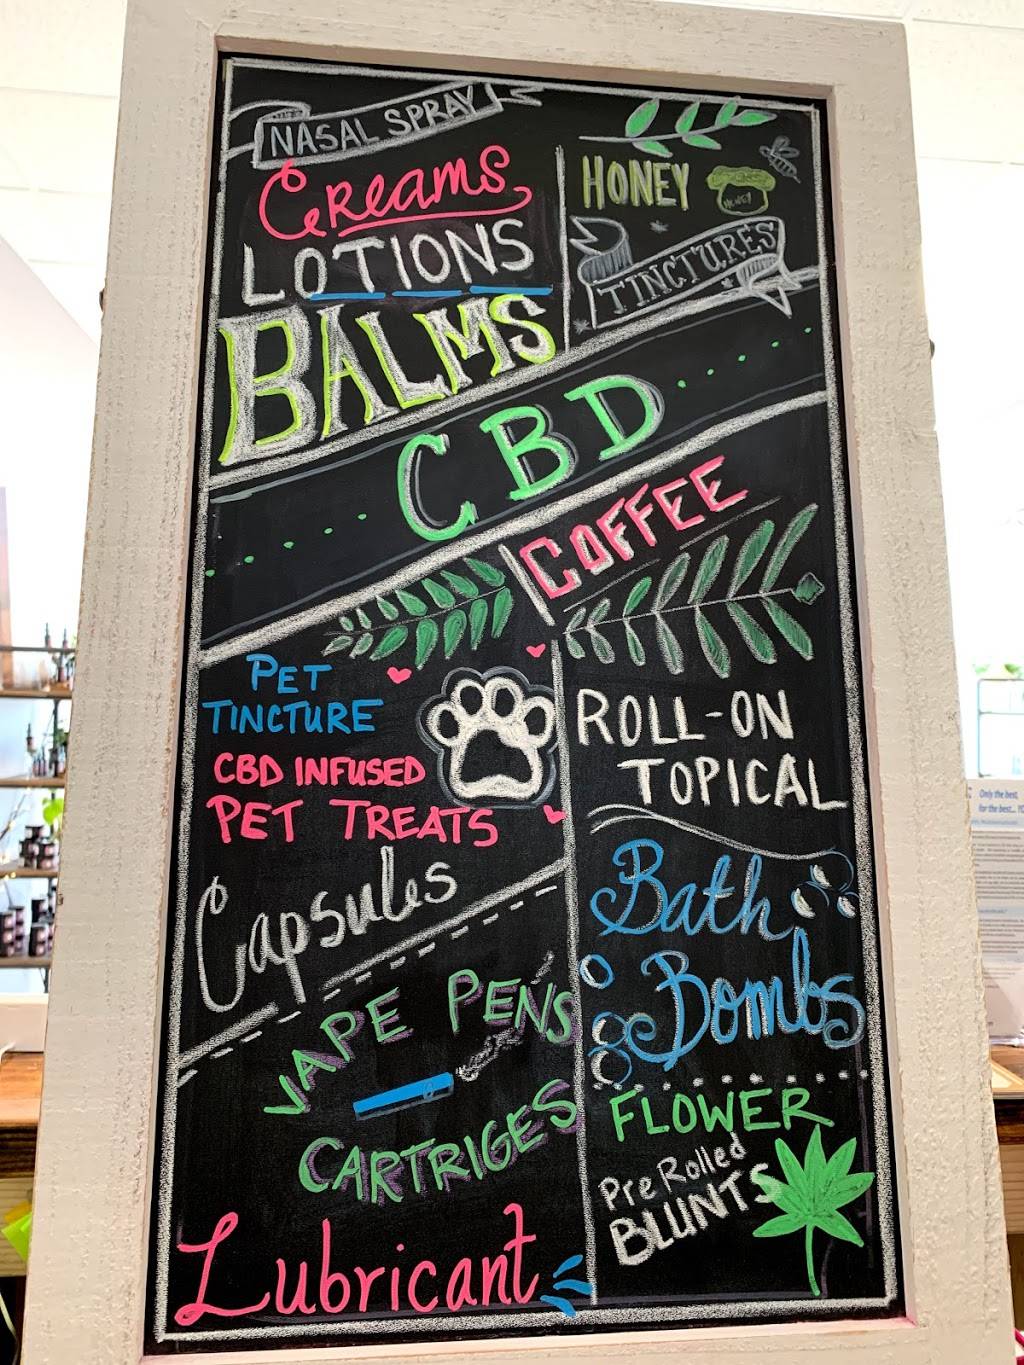 NASAL SPRAY
Creams
LOTIONS
BALMS
HONEY
HONEY
TINCTURES
CBD
COFFEE
PET
TINCTURE
CBD INFUSED
PET TREATS
Capsules
ROLL-ON
TOPICAL
Bath
Bombs
VAPE PENS
CARTRIGES
Lubricant
FLOWER
PreRolled
BLUNTS
Only the best,
for the best...